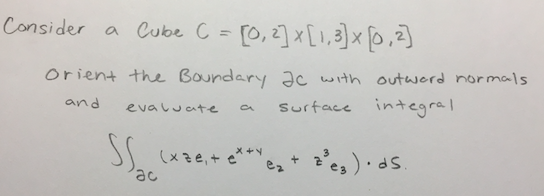 Consider a Cube C = [0,2]×[1,3]×[0,2]
Orient the Boundary ∂C with outword normals
and evaluate a surface integral
∬_∂C (xze₁ + e^{x+y} e₂ + z³e₃)·dS.